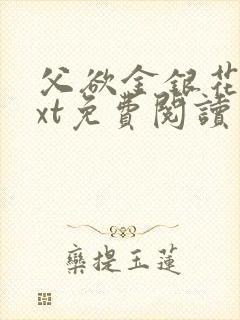 父欲金銀花
xt免費閱讀
欒提玉蓮